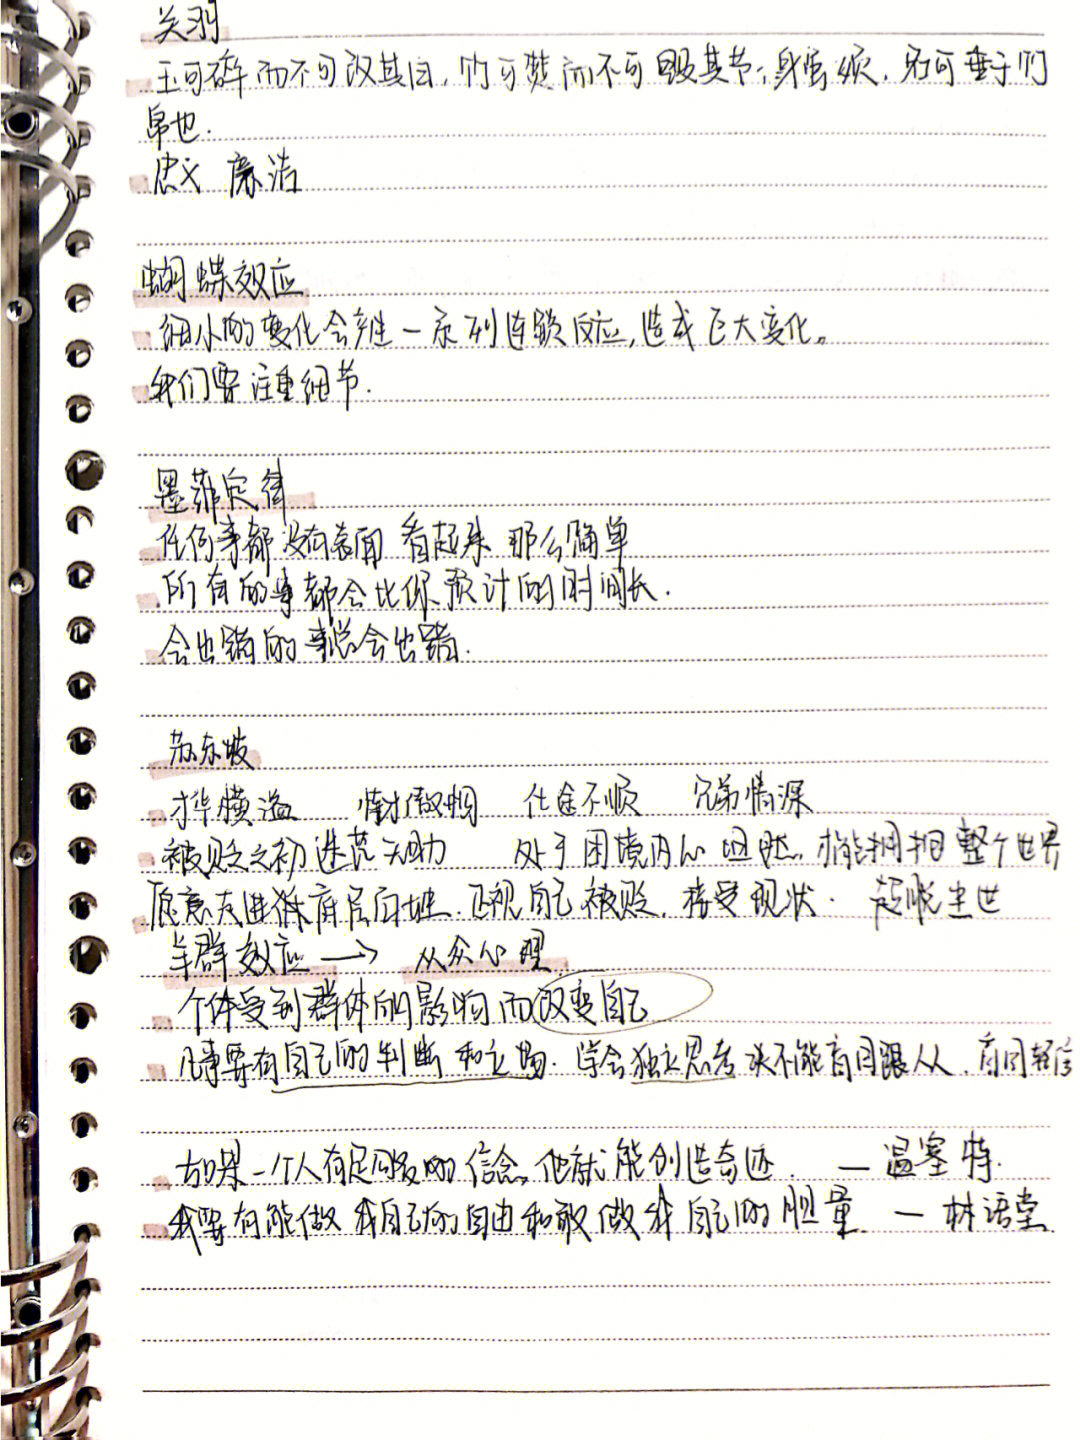 关羽
玉可碎而不可改其白，竹可焚而不可毁其节，身虽殒，名可垂于竹
帛也.
忠义 廉洁
蝴蝶效应
细小的变化会产生一系列连锁反应,造成巨大变化。
我们要注重细节.
墨菲定律
任何事都没有表面看起来那么简单
所有的事都会比你预计的时间长.
会出错的事总会出错.
苏东坡
才华横溢 恃才傲物 仕途不顺 兄弟情深
被贬之初迷茫无助 处于困境内心坦然。才能拥抱整个世界
愿意去进彻底居白地.正视自己被贬,接受现状. 超脱尘世
羊群效应 → 从众心理
个体受到群体的影响而改变自己
凡事要有自己的判断和立场.学会独立思考决不能盲目跟从,盲目轻信
如果一个人有足够的信念。他就能创造奇迹. —温塞特.
我要有能做我自己的自由和敢做我自己的胆量. —林语堂